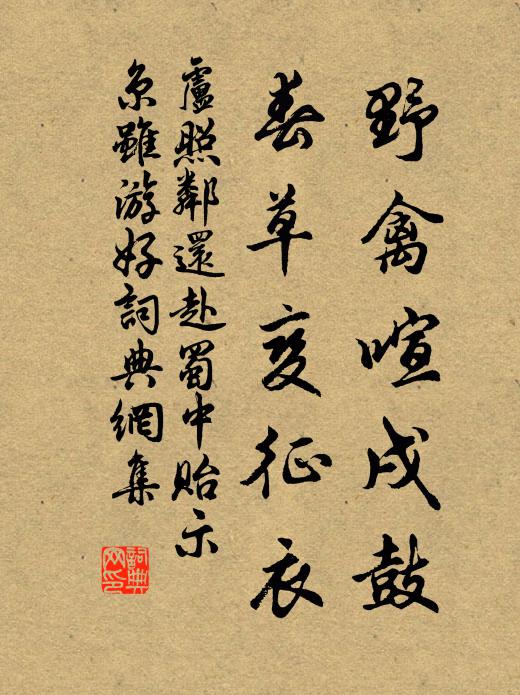 野禽喧戍鼓
春草變征衣
盧照鄰還赴蜀中貽示
京雖游好詞典網集
詞典
网印